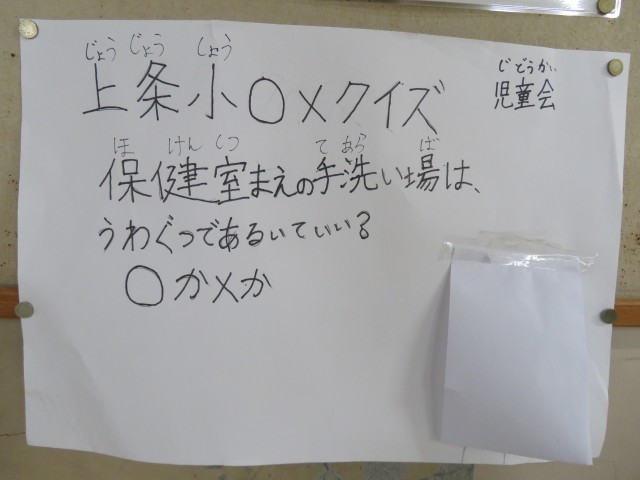 じょう じょう しょう
上条小〇×クイズ
じどうかい
児童会
ほ けん しつ て あら ば
保健室まえの手洗い場は、
うわぐつであるいていい?
〇か×か